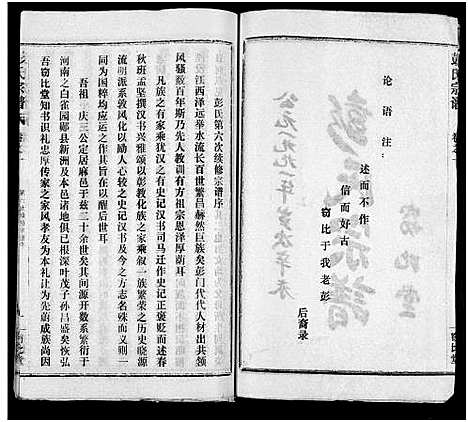 彭氏宗谱
卷之一
论语注：
述而不作
信而好古
窃比于我老彭
后裔录
公元一九九一年岁次辛未
彭氏宗谱
窃比堂
彭氏第六次续修宗谱序
江西泽远举水流长百子官繁昌赫然巨族矣彭门代代人材出共领
风骚数百年斯乃先人教训有方祖宗恩泽厚荫耳
凡族之有家乘犹汉之有史记汉书司马迁作史记正褒贬而述春
秋班孟坚撰汉书兴雅颂以彰教化族之家乘叙一族繁荣之历史晓源
流明派系敦风化以励人心较之史记汉书及今之方志名殊而义则一
同为国粹均应运而兴以醒后世耳
吾祖 庆三公定居麻邑于兹二十余世矣其间源开数系繁衍于
河南之白雀园郧县新洲及本邑诸地俱已根深叶茂子孙昌盛矣恢弘
吾窃比堂知书识礼忠厚传家之家风孝友为本礼让为先蔚成族尚因
彭氏宗谱
卷之一
窃比堂